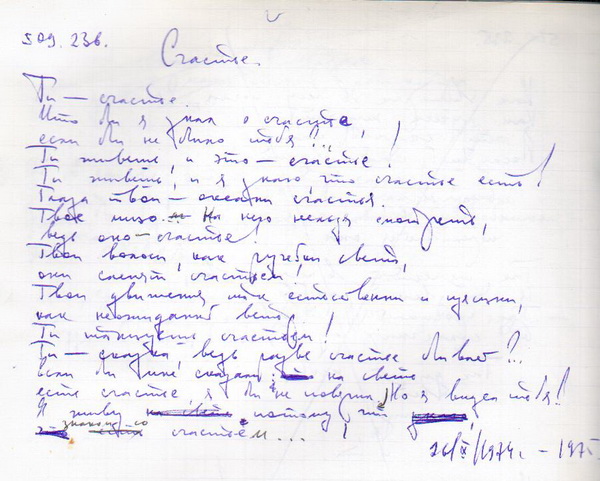 509. 23б.
Счастье.
Ты — счастье.
Что бы я знал о счастье,
если бы не было тебя?!..
Ты живешь, и это — счастье!
Ты живешь, и я знаю, что счастье есть!
Глаза твои — океаны счастья.
Твое лицо... На него нельзя смотреть,
ведь оно — счастье!
Твои волосы, как ручейки света,
они слепят счастьем!
Твои движения так естественны и изящны,
как неожиданный ветер!
Ты танцуешь счастьем!
Ты — сказка, ведь разве счастье бывает?..
Если бы мне сказали, на свете
есть счастье, я бы не поверил, Но я видел тебя!!
Я живу потому, что
знаком со счастьем... !
26/IX/1974г. - 1975